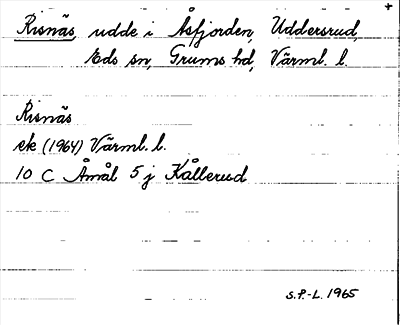 Risnäs, udde i Åsfjorden, Uddersrud,
Eds sn, Grums hd, Värml. l.
Risnäs
ek (1964) Värml. l.
10 C Åmål 5 j Kållerud
S.P.-L. 1965